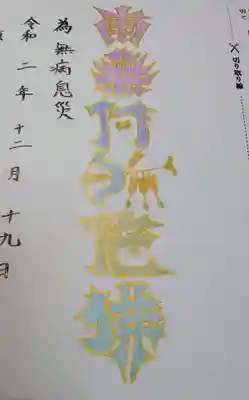 切り取り線
南無阿弥陀佛
為無病息災
令和二年十二月十九日